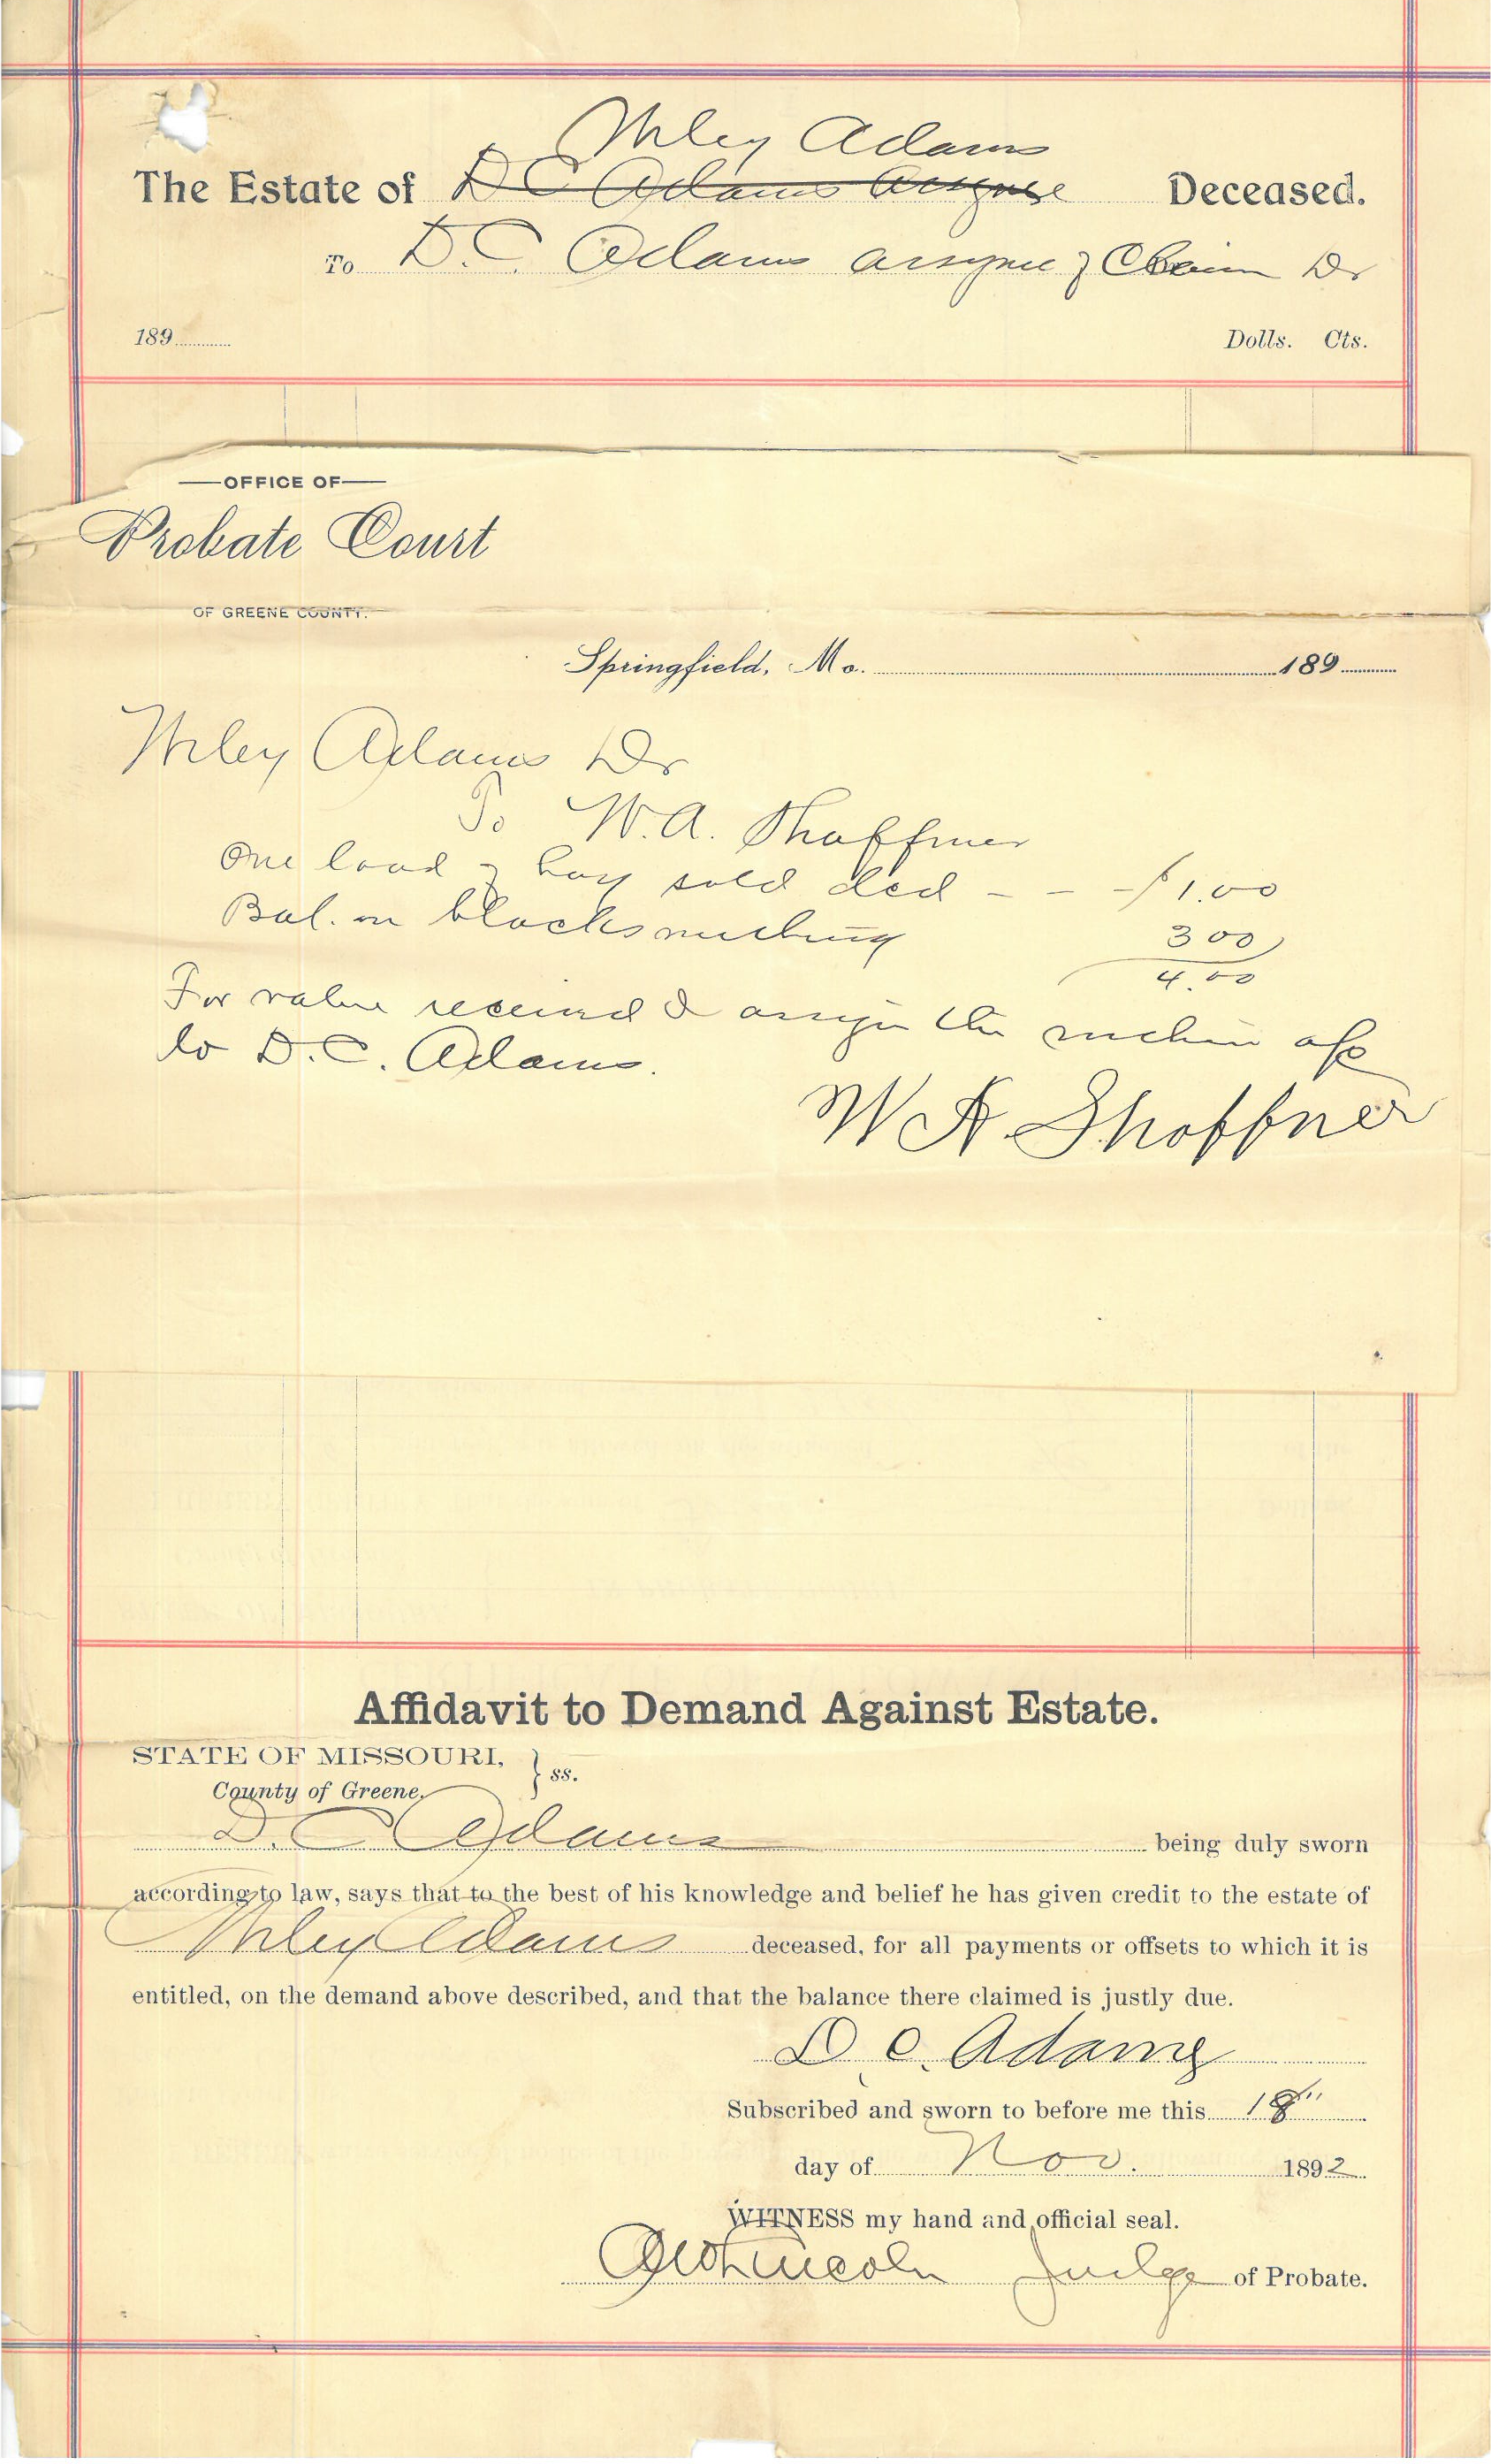 Wiley Adams
The Estate of D C Adams assignee Deceased.
To D. C. Adams assignee of Claim Dr
189 Dolls. Cts.
OFFICE OF
Probate Court
OF GREENE COUNTY.
Springfield, Mo. 189
Wiley Adams Dr
To W. A. Shoffner
One load of hay sold decd - - - $1.00
Bal. on blacksmithing 3 00
4.00
For value received I assign the within a/c
to D. C. Adams.
W A. Shoffner
Affidavit to Demand Against Estate.
STATE OF MISSOURI,
County of Greene. } ss.
D. C. Adams being duly sworn
according to law, says that to the best of his knowledge and belief he has given credit to the estate of
Wiley Adams deceased, for all payments or offsets to which it is
entitled, on the demand above described, and that the balance there claimed is justly due.
D. C. Adams
Subscribed and sworn to before me this 18"
day of Nov. 1892
WITNESS my hand and official seal.
Lincoln Judge of Probate.